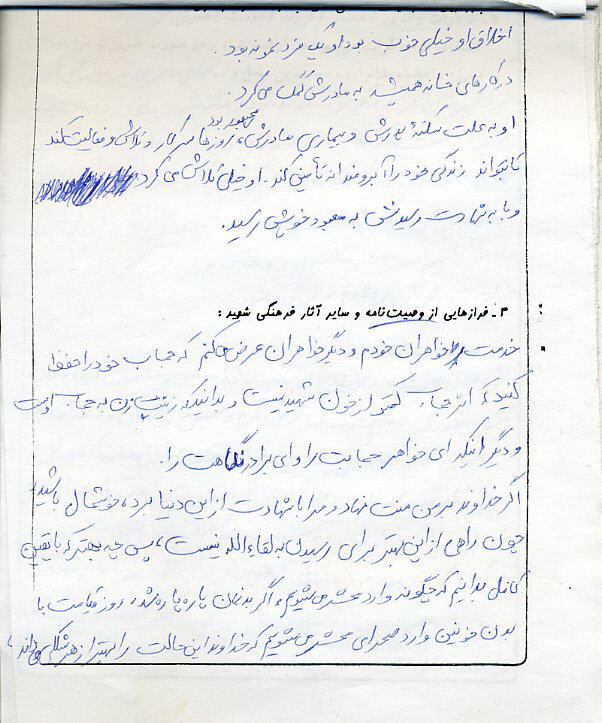 اخلاق او خیلی خوب بود او یک فرد نمونه بود.
در کارهای خانه همیشه به مادرش کمک می‌کرد.
او به علت سکته پدرش و بیماری مادرش، مجبور بود روزها سر کار و تلاش و فعالیت کند
تا بتواند زندگی خود را آبرومندانه تأمین کند. او خیلی تلاش می کرد
و با به شهادت رسیدنش به معبود خویش رسید.
۳- فرازهایی از وصیت‌نامه و سایر آثار فرهنگی شهید:
خدمت خواهران خودم و دیگر خواهران عرض می‌کنم که حجاب خود را حفظ
کنید که اثر حجاب کمتر از خون شهید نیست و بدانید که زینت زن به حجاب اوست
و دیگر اینکه ای خواهر حجابت را و ای برادر نگاهت را.
اگر خداوند بر من منت نهاد و مرا با شهادت از این دنیا برد، خوشحال باشید
چون راهی از این بهتر برای رسیدن به لقاءالله نیست، پس چه بهتر که با یقین
کامل بدانیم که چگونه وارد محشر می‌شویم، اگر بدنمان پاره پاره شد، روز قیامت با
بدن خونین وارد صحرای محشر می‌شویم که خداوند این حالت را بهتر از هر شکلی می‌داند،